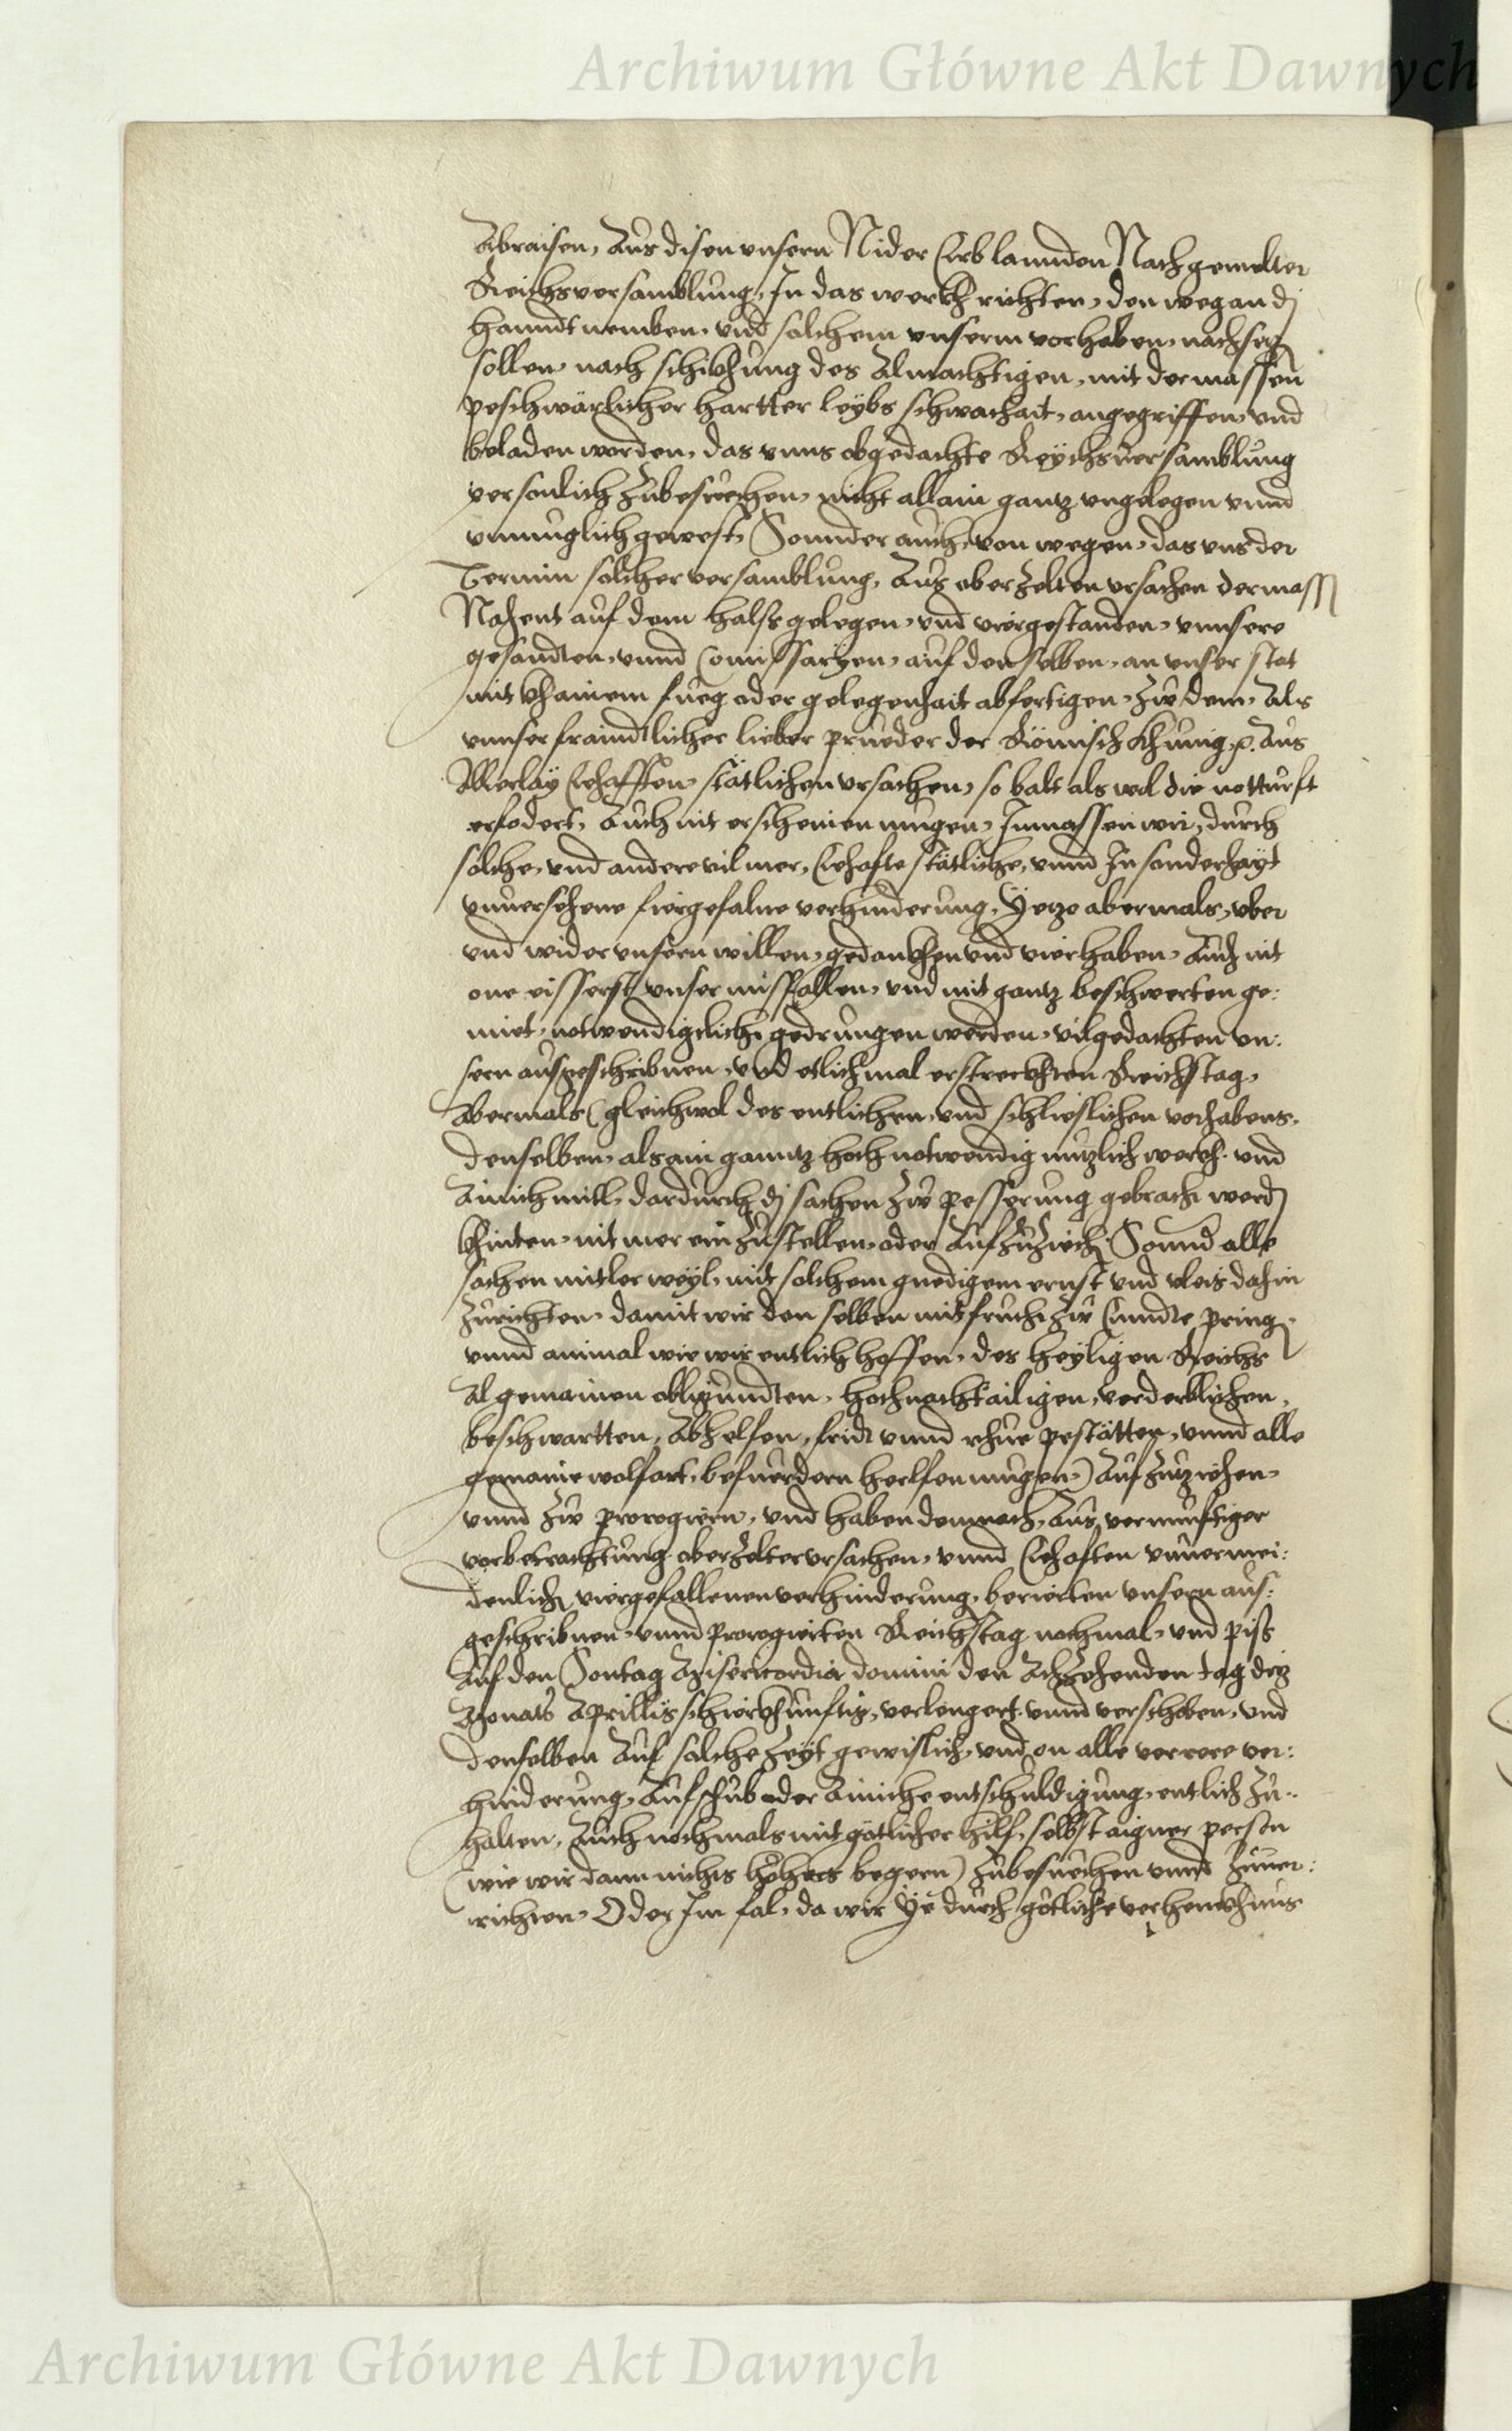 Archiwum Główne Akt Dawnych
Abraisen, Aus disen unsern Nider Erblannden Nach gemelter
Reichsversamblung, In das werkh richten, den weg an di
hanndt nemben, und solchem unserm vorhaben nachsezn
sollen, nach schikhung des Almachtigen, mit dermassen
peschwärlicher hartter leybs schwachait, angegriffen, und
beladen worden, das unns obgedachte Reychsversamblung
personlich zubesuechen, nicht allain gantz ungelegen unnd
unmuglich gewest, Sonnder auch, von wegen, das uns der
Termin solcher versamblung, Aus oberzelten ursachen dermassn
Nahent auf dem halss gelegen, und viergestanden, unnsere
gesandten, unnd Comissarien, auf denselben, an unser stat
mit khainem fueg oder gelegenhait abfertigen, Zu dem, Als
unnser fraindtlicher lieber prueder der Römisch Khunig, etc. Aus
Allerlay Ehafften stätlichen ursachen, so balt als wol die notturft
erfodert, Auch nit erscheinen mugen, Inmassen wir, durch
solche, und andere vil mer, Ehafte stätliche, unnd In sonderhayt
unversehene fiergefalne verhinderung, Yetzo abermals, uber
und wider unsern willen, gedankhen und vierhaben, Auch nit
one eisserst unser missfallen, und mit gantz beschwerten ge:
miet, notwendigclich gedrungen werden, vilgedachten un:
sern ausgeschribnen, und etlichmal erstreckhten Reichstag,
Abermals (gleichwol des entlichen, und schlieslichen vorhabens,
denselben, als ain ganntz hochnotwendig nuzlich werkh, und
Ainich mitl, dardurch di sachen zu pesserung gebracht werdn
khinten, nit mer einzustellen, oder Aufzuziechn, Sonnd alle
sachen mitler weyl, mit solchem gnedigem ernst und vleis dahin
zurichten, damit wir den selben mit frucht zu Ennde pringn
unnd ainmal wie wir entlich hoffen, des heyligen Reichs
Algemainen obligunden, hochnachtailigen, verderblichen,
beschwartten, Abhelfen, fridt unnd rhue pestätten, unnd alle
gemaine wolfart, befuerdern helfen mugen) Aufzuziehen,
unnd zu prorogiern, und haben demnach, Aus vernunftiger
vorbetrachtung oberzelter ursachen, unnd Ehaften unvermei:
denlich viergefallenen verhinderung, berierten unsern aus:
geschribnen, unnd prorogierten Reichstag nochmal, und piss
Auf den Sontag Misericordia domini den Achzehenden tag diz
Monats Aprillis schirkhunftig, verlengert unnd verschoben, und
denselben Auf solche Zeyt gewislich, und on alle verrere ver:
hinderung, Aufschub oder Ainiche entschuldigung, entlich zu:
halten, Auch nochmals mit götlicher hilf, selbst aigner person
(wie wir dann nichts höhers begern) zubesuechen unnd zuver:
richten, Oder Im fal, da wir Ye durch götliche verhenkhnus
Archiwum Główne Akt Dawnych